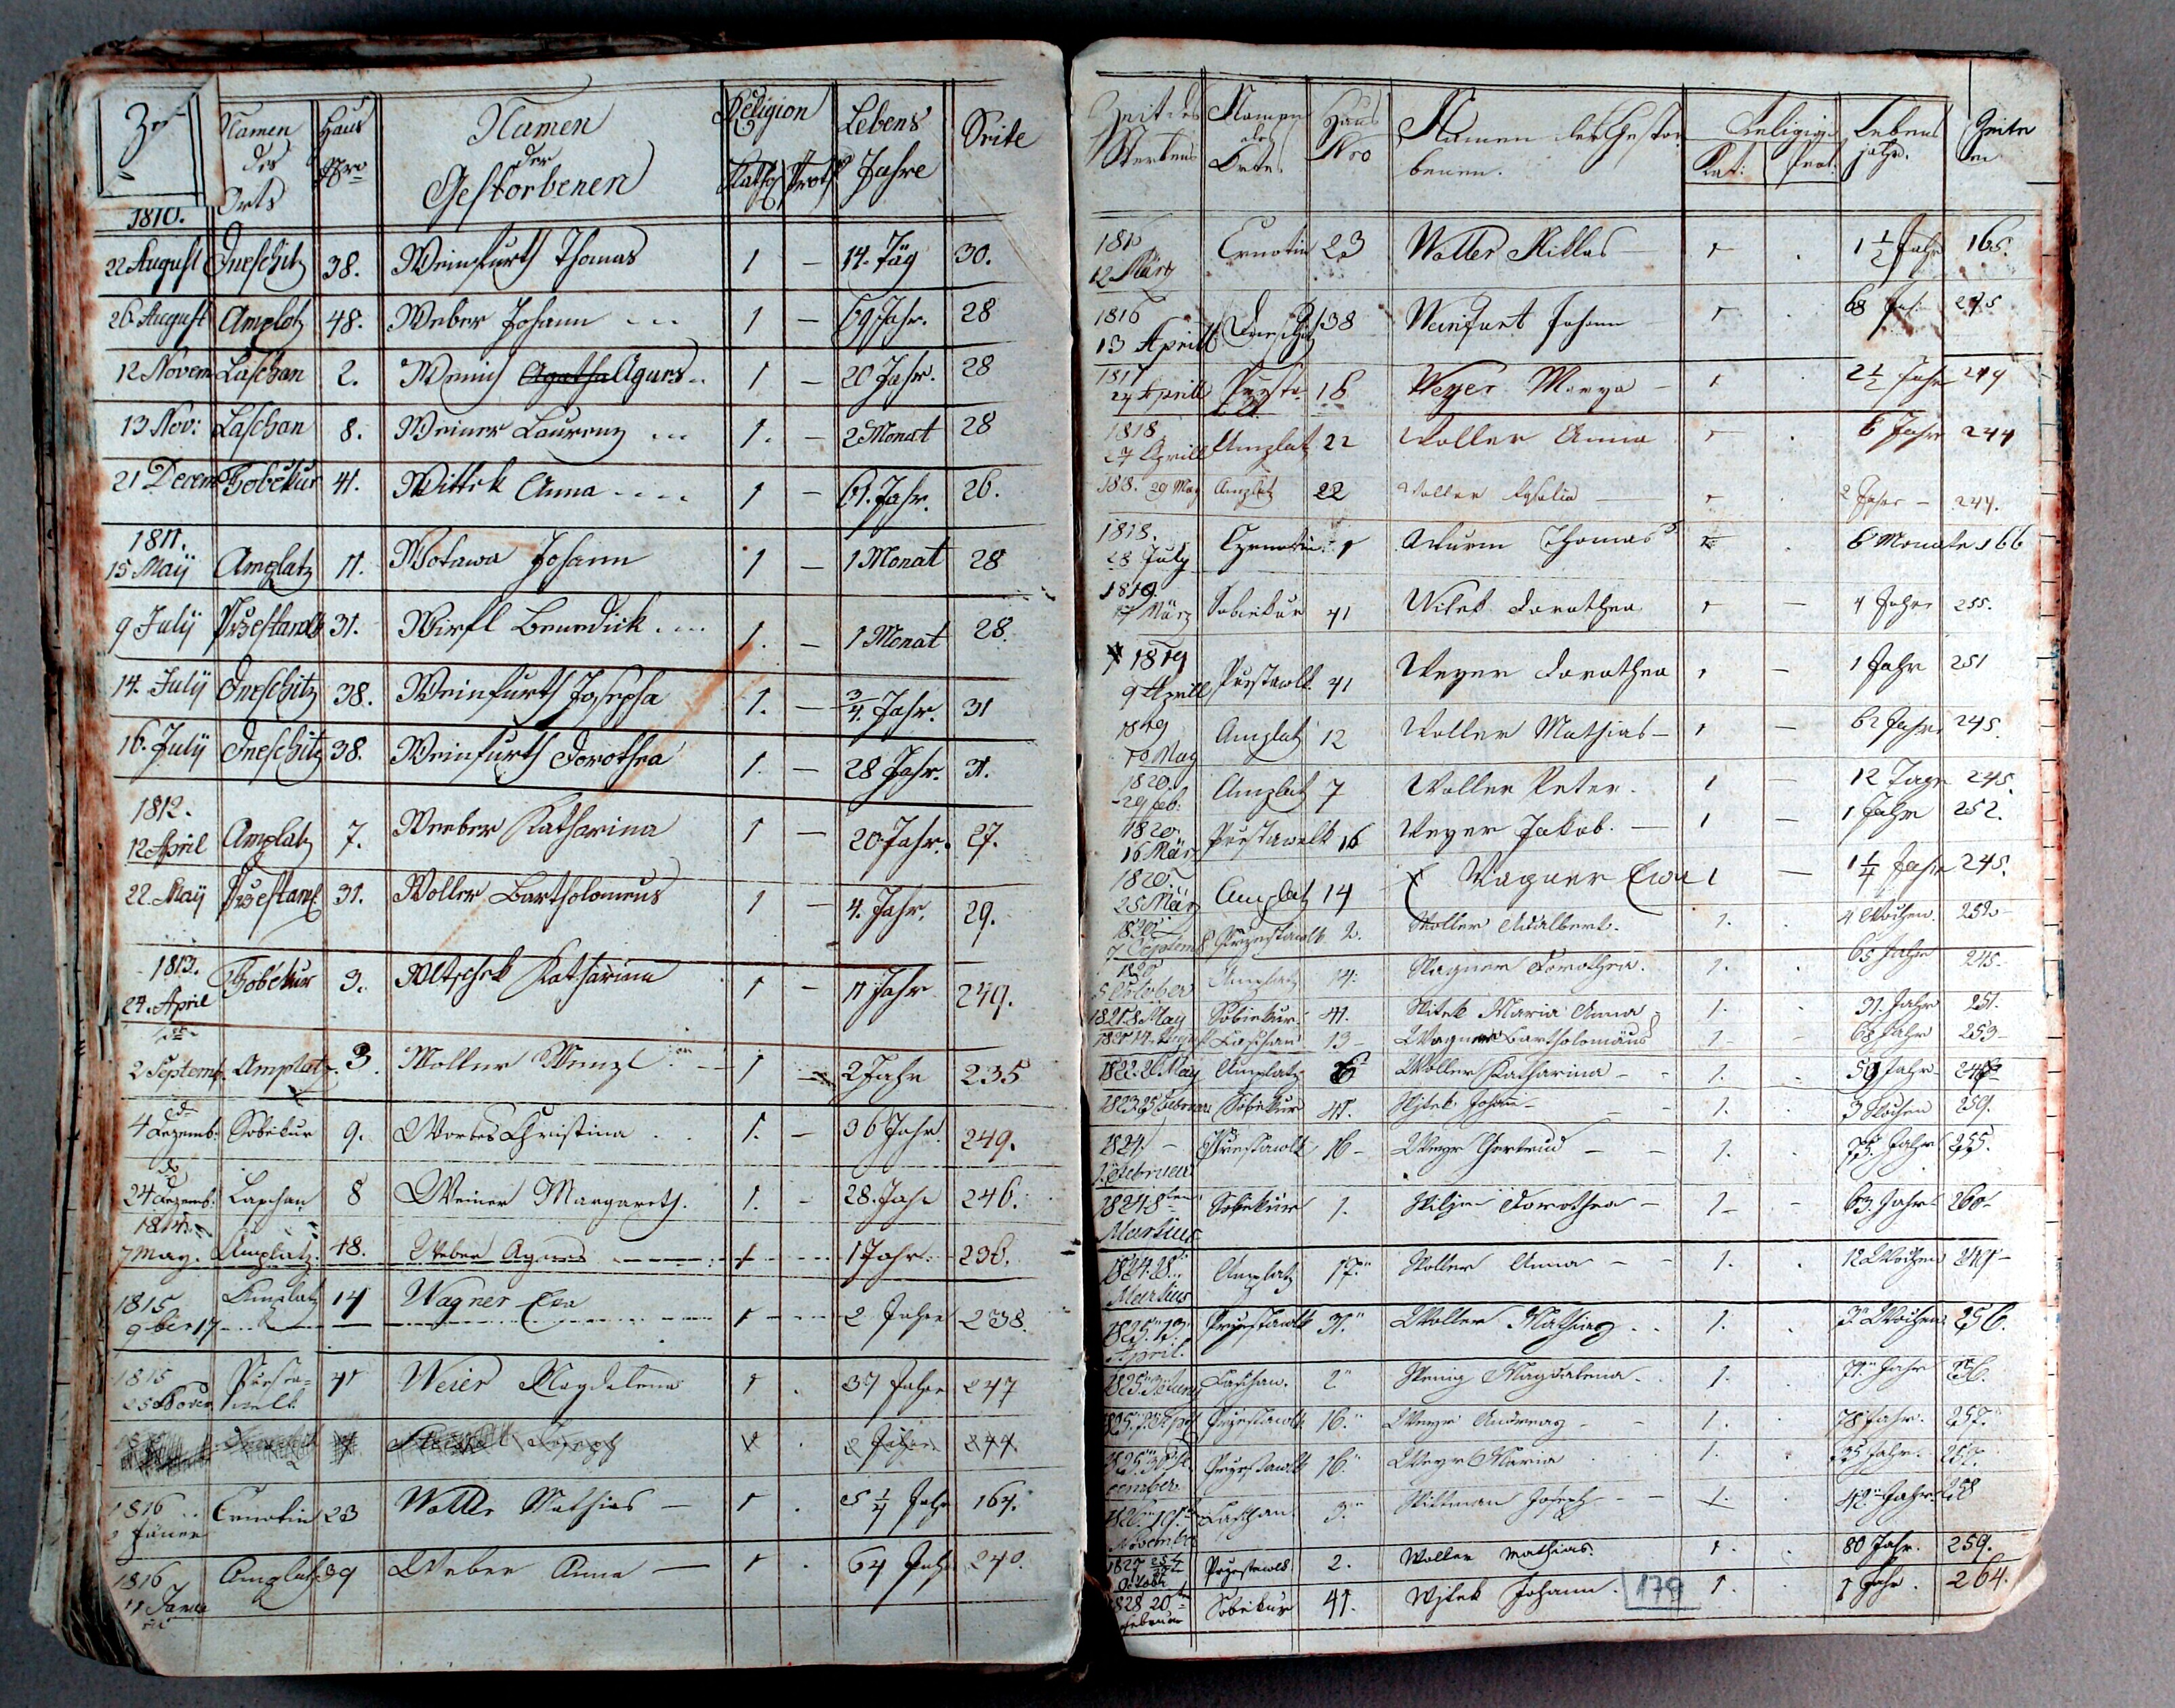 Namen des Orts Haus Nro Namen der Gestorbenen Religion Kath Prots Lebens Jahre Seite
1810.
22 August Dneschitz 38. Weinfurth Thomas 1 – 14. Täg 30.
26. August Amplatz 48. Weber Johann 1 – 69 Jahr. 28
12 Novem Laschan 2. Wenich Agatha Agnes 1 – 20 Jahr. 28
13 Nov: Laschan 8. Weiner Laurenz 1. – 2 Monat 28
21 Decem Zobekur 41. Wittek Anna 1 – 61. Jahr. 26.
1811.
15 Maÿ Amplatz 11. Wotawa Johann 1 – 1 Monat 28
9 Julÿ Przestawlk 31. Wirfl Benedick 1. – 1 Monat 28.
14. Julÿ Dneschitz 38. Weinfurth Josepha 1. – 3/4. Jahr. 31
16. Julÿ Dneschitz 38. Weinfurth Dorothea 1. – 28 Jahr. 31.
1812.
12 April Amplatz 7. Weeber Katharina 1 – 20 Jahr. 27.
22. Maÿ Przestawl 31. Woller Bartholomeus 1 – 4. Jahr. 29.
1813.
24. April Zobekur 3. Katharina 1 – 11 Jahr 249.
2 Septemb. Amplatz 3. Woller Wenzl 1 – 2 Jahr 235
4 Dezemb: Sobekur 9. Christina 1. – 36 Jahr. 249.
24 Dezemb: Laschan 8 Weiner Margareth. 1. – 28. Jahr 246.
1814.
7 May. Amplatz. 48. Weber Agnes 1 1 Jahr. 236.
1815
9ber 17 Amplatz 14 Wagner Eva 1 2 Jahre 238.
1815
25 Novem Przesta=
welk 41 Weier Magdalena 1 . 37 Jahre 247
Joseph 2 Jahre 244
1816
Jäner Crnotin 23 Woller Mathias – 1 . 5 1/4 Jahr 164.
1816
11 Janua Amplatz 39 Weber Anna – 1 . 64 Jahr 240.
Zeit des Sterbens Namen des Ortes Haus Nro Namen der Gestorbenen. Religion Kat: Prot. Lebens jahr. Seite
1816
12 März Crnotin 23 Woller Niklas – 1 . 1 1/2 Jahr 165.
1816
13 Aprill Dneschitz 38 Weinfurt Johann 1 . 68 Jah: 245
1817
24 Aprill Przesta 16 Weyer Marya – 1 . 2 1/2 Jahr 249
1818
27 Aprill Amplatz 22 Woller Anna 1 . 6 Jahr 244
1818. 29 May Amplatz 22 Woller Rosalia 1 . 2 Jahr – 244.
1818.
28 July Czernotin 1 Wurm Thomas 1 . 6 Monate 166
1819.
17 März Sobiekur 41 Witek Dorothea 1 – 4 Jahre 255.
1819
9 Aprill Przestawlk 41 Weyer Dorothea 1 – 1 Jahr 251
1819
10 May Amplatz 12 Woller Mathias – 1 – 62 Jahre 245.
1820.
29 feb: Amplatz 7 Woller Peter. 1 – 12 Tage 245.
1820.
16 März Przestawelk 16 Weyer Jakob. – 1 – 1 Jahr 252.
1820
25 März Amplatz 14 Wagner Ewa 1 – 1 1/4 Jahr 245.
1820
7 Septemb Przestawlk 2. Woller Adalbert. 1. . 4 Wochen. 252.
1820
5 October Amplatz 14. Wagner Dorothea. 1. . 65 Jahr 245
1821. 8 May Sobiekur. 41. Witek Maria Anna 1. . 31. Jahr 251.
14. August Laschan 13 Wagner Bartholomäus 1 – 68 Jahr 253
1822. 20. May Amplatz 6 Woller Katharina – 1. . 59 Jahr 248
1823 25 Februar Sobekur 41. Witek Johann – 1. . 3 Wochen 259.
1824. –
Februar Przestawlk 16 – Weyr Gertrud – 1. . 75. Jahr 255.
1824 8ten
Martius Sobiekur 1. Dorothea – 1 – 63. Jahr 260
1824. 28.
Martius Amplatz 17. Woller Anna – 1. . 12 Wochen
1825. 13.
April. Przestawlk 31. Woller Mathias. 1. . 3 Wochen 256.
1825. Laschan. 2. Wenig Magdalena. 1. . 71. Jahr 256.
1825. Przestawlk 16. Weyr Andreas 1. . 78 Jahr. 257.
1825.
cember. Przestawlk 16. Weyr Maria 1. . 35 Jahr. 257.
1826.
November Laschan. 3. Wittman Joseph 1. 42 Jahr. 258
1827 25
Octob: Przestawlk. 2. Woller Mathias. 1. . 80 Jahr. 259.
1828 20
Februar Sobekur 41. Witek Johann. 1. . 1 Jahr. 264.
179